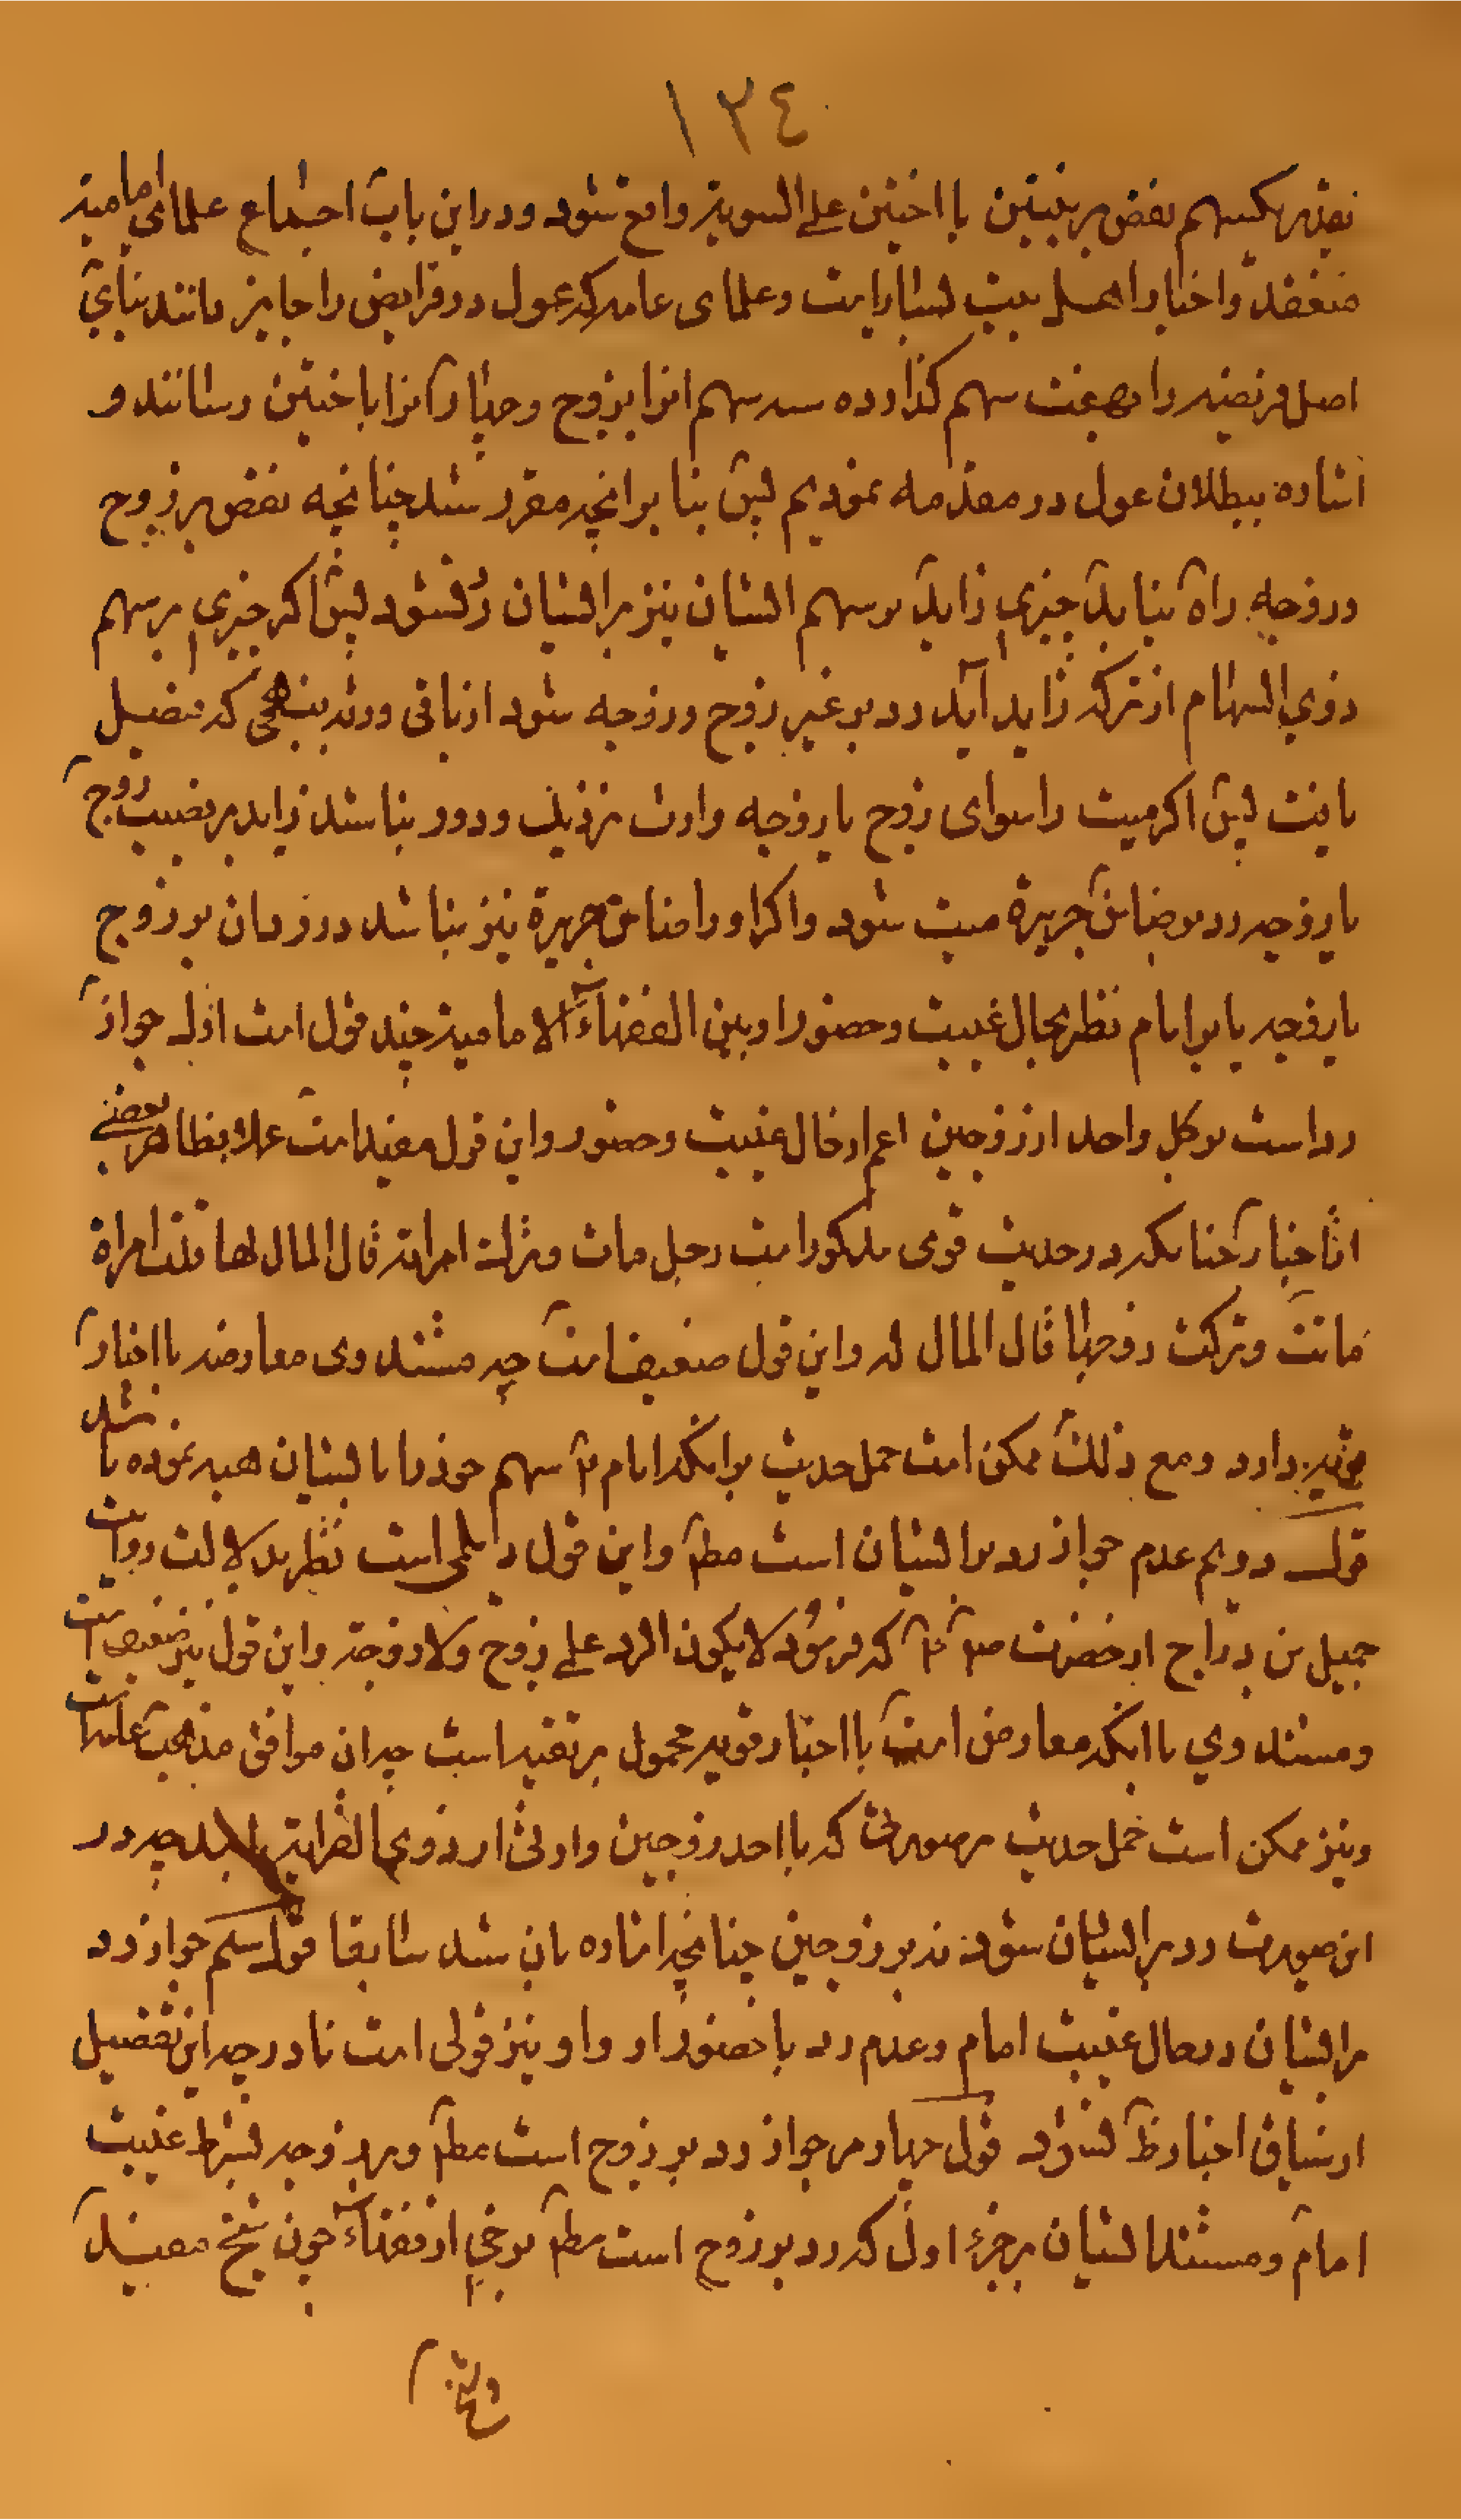 ١٣٤
بقدر یکسهم نقض بر بنتین یا اختین علی السویة واقع شود و در این باب اجماع علمای امامیه
منعقد و اخبار اهل بیت بسیار است و علمای عامه که عول در فرایض را جایز دانند بنای
اصل فریضه را بهفت سهم گذارده سه سهم انرا بزوج و چهار انرا باختین رسانند و
اشاره ببطلان عول در مقدمه نمودیم پس بنا بر آنچه مقرر شد چنانچه نقض بر زوج
و زوجه راه نیابد چیزی زاید بر سهم ایشان نیز بر ایشان رد نشود پس اگر چیزی بر سهم
ذوی السهام از ترکه زاید آید رد بر غیر زوج و زوجه شود از باقی ورثه بنهجی که تفصیل
یافت پس اگر میت را سوای زوج یا زوجه وارث نزدیک و دور نباشد زاید بر نصیب زوج
یا زوجه رد بر ضامن جریره میت شود و اگر او را ضامن جریره نیز نباشد در رد آن بر زوج
یا زوجه یا بر امام نظر بحال غیبت و حضور او بین الفقهاء الامامیة چند قول است اول جواز
رد است بر کل واحد از زوجین اعم از حال غیبت و حضور و این قول مفید است عملا بظاهر بعضی
از اخبار چنانکه در حدیث قوی مذکور است رجل مات و ترک امراته قال المال لها قلت امراة
ماتت و ترکت زوجها قال المال له و این قول ضعیف است چه مستند وی معارضه با اخبار
قویه دارد و مع ذلک ممکن است حمل حدیث بر آنکه امام ع سهم خود را با ایشان هبه نموده باشد
قول دویم عدم جواز رد بر ایشان است مط و این قول دیلمی است نظر بدلالت روایت
جمیل بن دراج از حضرت ص ع که فرمود لا یکون الرد علی زوج ولا زوجة و این قول نیز ضعیف است
و مستند وی با آنکه معارض است با اخبار قویه محمول بر تقیه است چه ان موافق مذهب عامه است
و نیز ممکن است حمل حدیث بر صورتی که با احد زوجین وارثی از ذوی القرابة باشد چه در
این صورت رد بر ایشان شود نه بر زوجین چنانچه اشاره بان شد سابقا قول سیم جواز رد
بر ایشان در حال غیبت امام و عدم رد با حضور او و او نیز قولی است نادر چه این تفصیل
از سیاق اخبار ظ نشود قول چهارم جواز رد بر زوج است مط و بر زوجه بشرط غیبت
امام و مستند ایشان بر جزء اول که رد بر زوج است مط برخی از فقهاء چون شیخ مفید
و شیخ